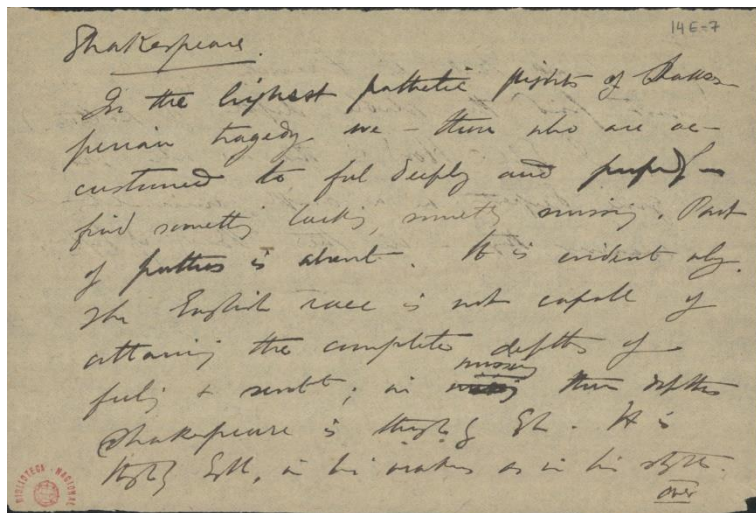 14E-7
Shakespeare.
In the highest pathetic flights of Shakes-
perian tragedy we – those who are ac-
customed to feel deeply and
find something lacking, something missing. Part
of pathos is absent. It is evident why.
The English race is not capable of
attaining the complete depths of
feeling & ; in missing these depths
Shakespeare is thoroughly Eng. It is
thoroughly Engl., in his as in his
over
BIBLIOTECA NACIONAL